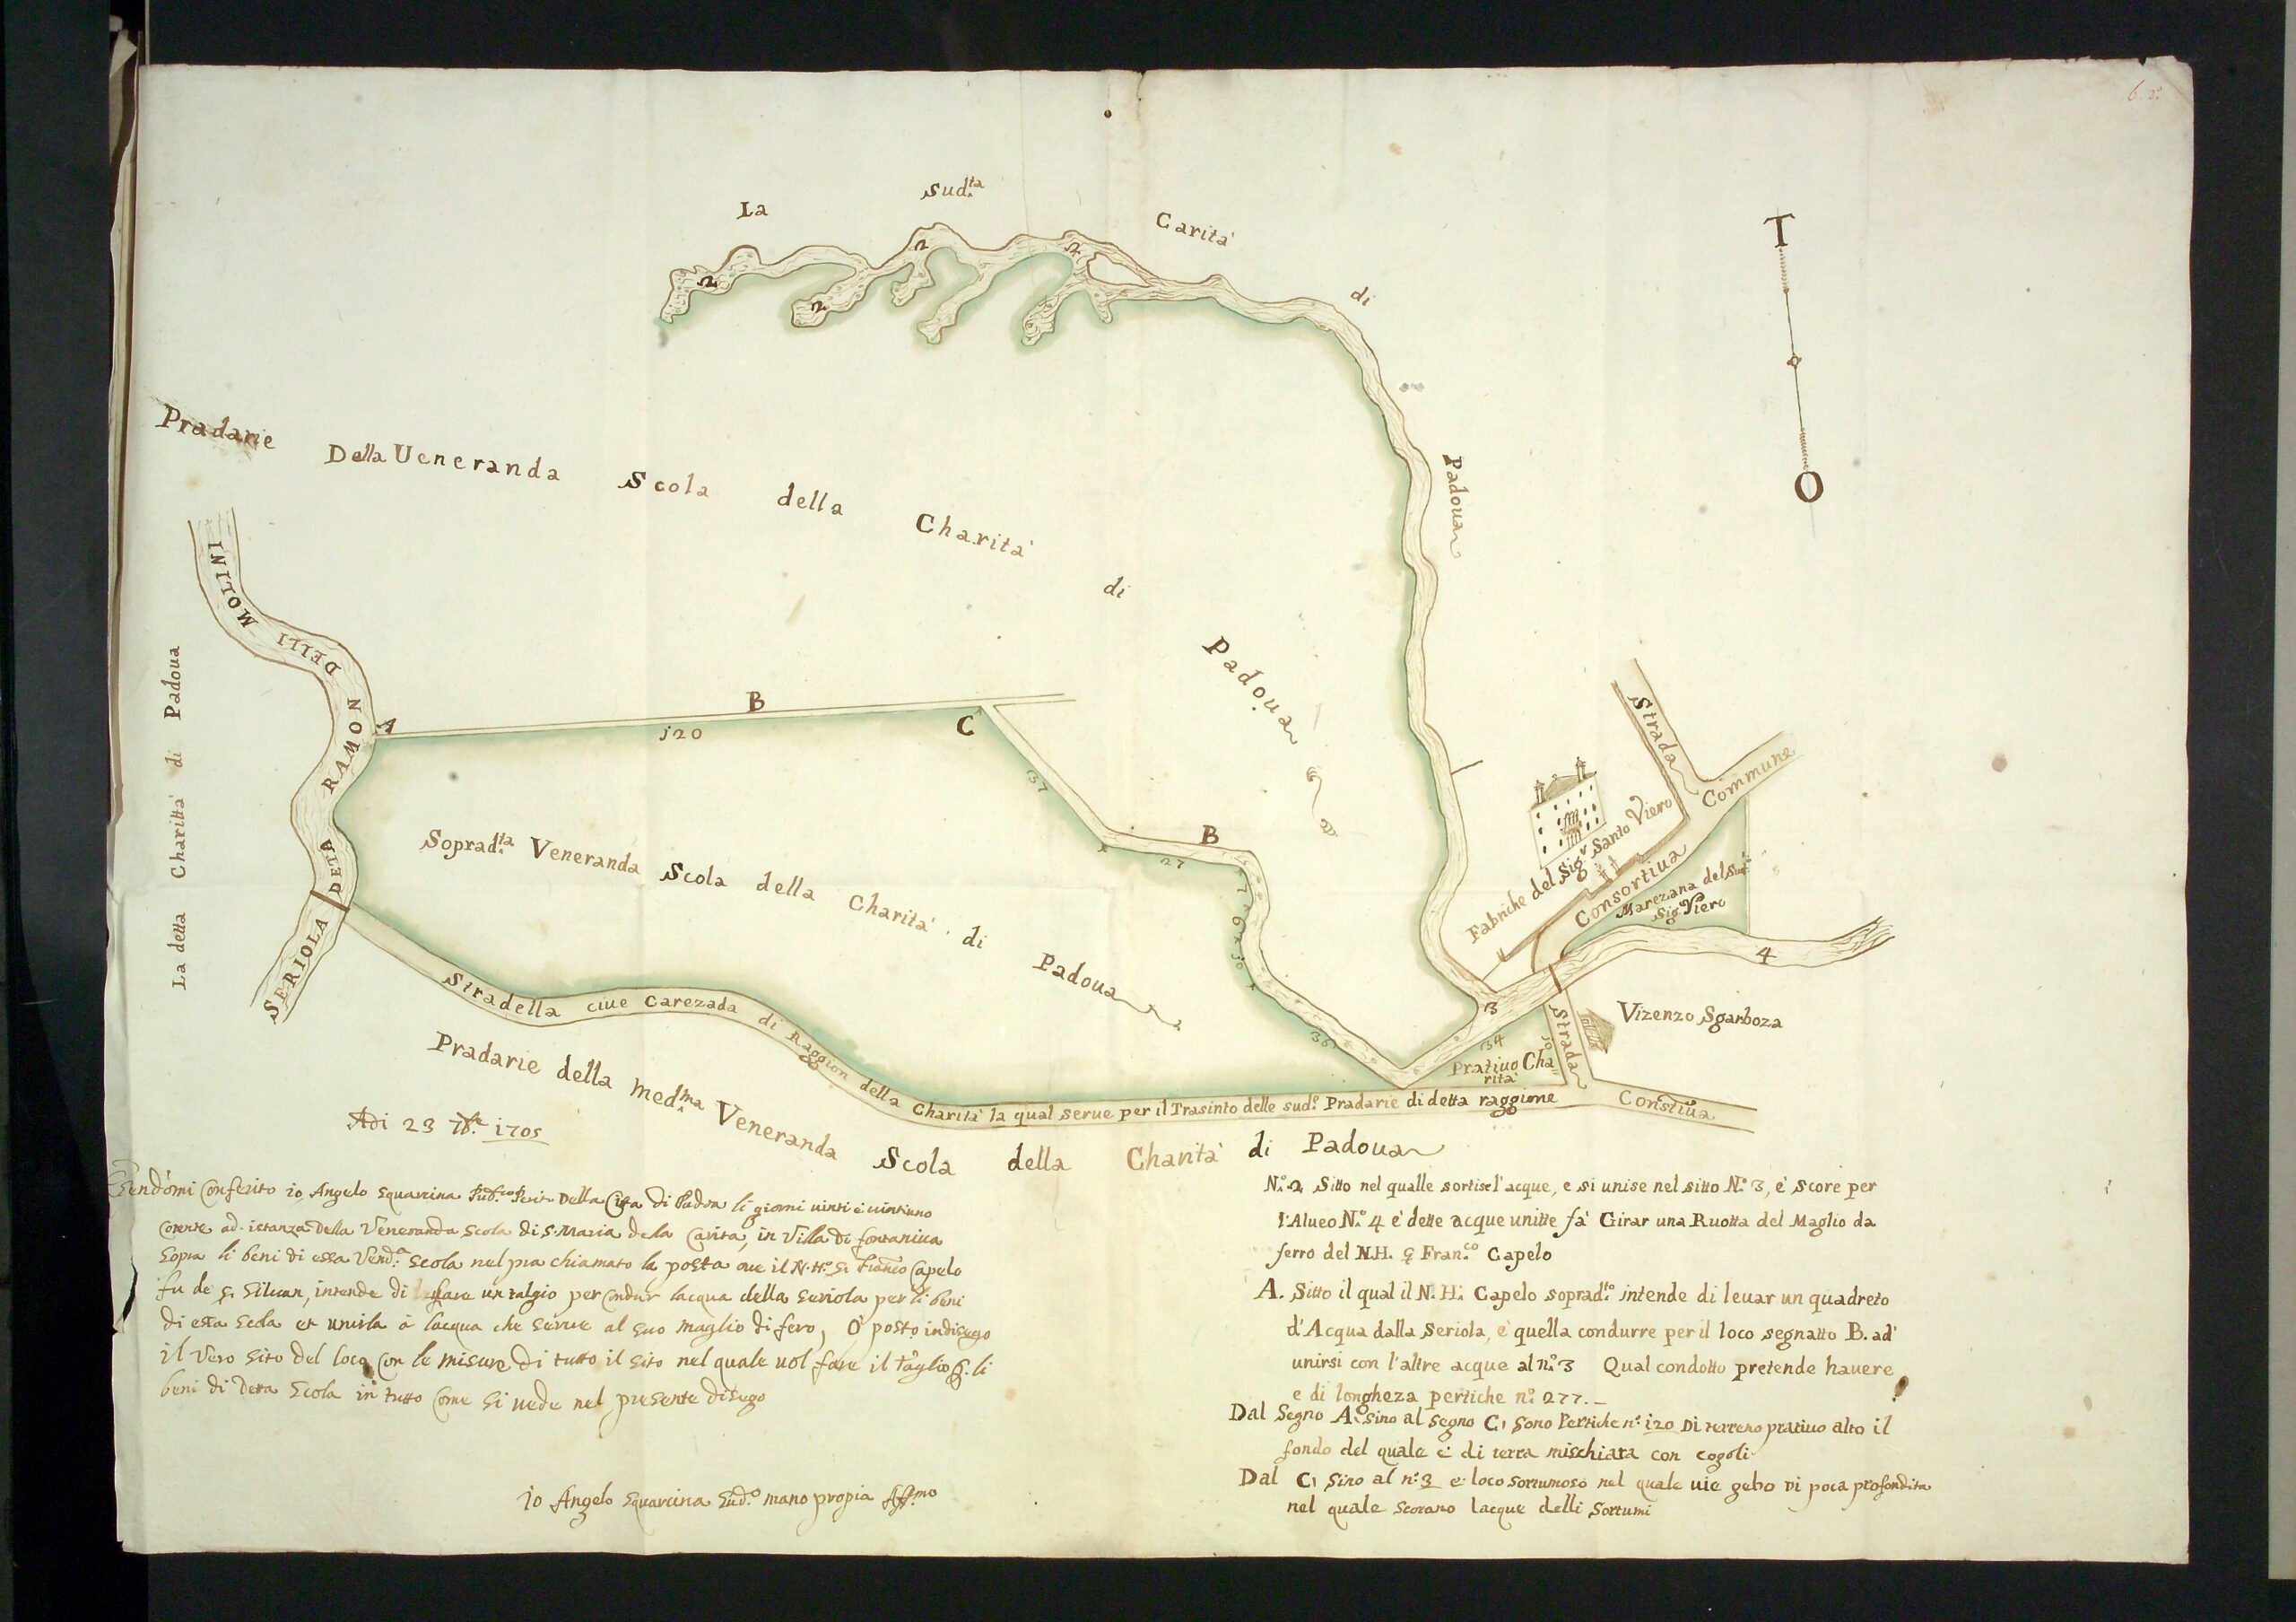 6. 2º
La Sud.ta Carità di Padoua
2 2 2 2
T
O
Pradarie Della Ueneranda Scola della Charità di Padoua
SERIOLA DETA RAMON DELLI MOLINI
La detta Charittà di Padoua
A B C
120
37
B
27
36
Soprad.ta Veneranda Scola della Charità di Padoua
Stradella Carezada di Raggion della Charità la qual serue per il Trasinto delle sud.e Pradarie di detta raggione
Strada
Commune
Consortiua
Fabriche del Sig.r Santo Viero
Marezana del
Sig.r Viero
3
4
34
10
Pratiuo Cha=
rità
Strada
Vizenzo Sgarboza
Constiua
Pradarie della med.ma Veneranda Scola della Charità di Padoua
Adi 23 7b.re 1705
Sendomi Conferito io Angelo Squarcina Pub.co Perito Della Cita di Padoa li giorni uinti e uintiuno
corente ad istanza Della Veneranda Scola di S. Maria dela Carita, in Villa di fontaniua
Sopra li beni di essa Vend.a Scola nel pra chiamato la posta oue il N.H. S. Fran.co Capelo
fu de S. Siluan, intende di fare un talgio per Condur lacqua della Seriola per li beni
di esta Scola et unirla à lacqua che serue al suo maglio di fero, O' posto indisegno
il Vero sito del loco Con le misure Di tutto il sito nel quale uol fare il taglio p. li
beni di Detta Scola in tutto Come Si uede nel presente disego
io Angelo Squarcina Sud.o mano propia Aff.mo
N.o 2 Sitto nel qualle sortise l'acque, e si unise nel sitto N.o 3, è score per
l'Alueo N.o 4 è dette acque unitte fà Girar una Ruotta del Maglio da
ferro del N.H. S Fran.co Capelo
A. Sitto il qual il N.H. Capelo soprad.to intende di leuar un quadreto
d'Acqua dalla Seriola, è quella condurre per il loco segnatto B. ad'
unirsi con l'altre acque al n.o 3 Qual condotto pretende hauere
e di longheza pertiche n.o 277.
Dal Segno A. sino al segno C, sono Pertiche n.o 120 Di terreno pratiuo alto il
fondo del quale è di terra mischiata con cogoli
Dal C, Sino al n.o 3 e loco sortumoso nel quale uie gebo Di poca profondita
nel quale scorano lacque delli Sortumi